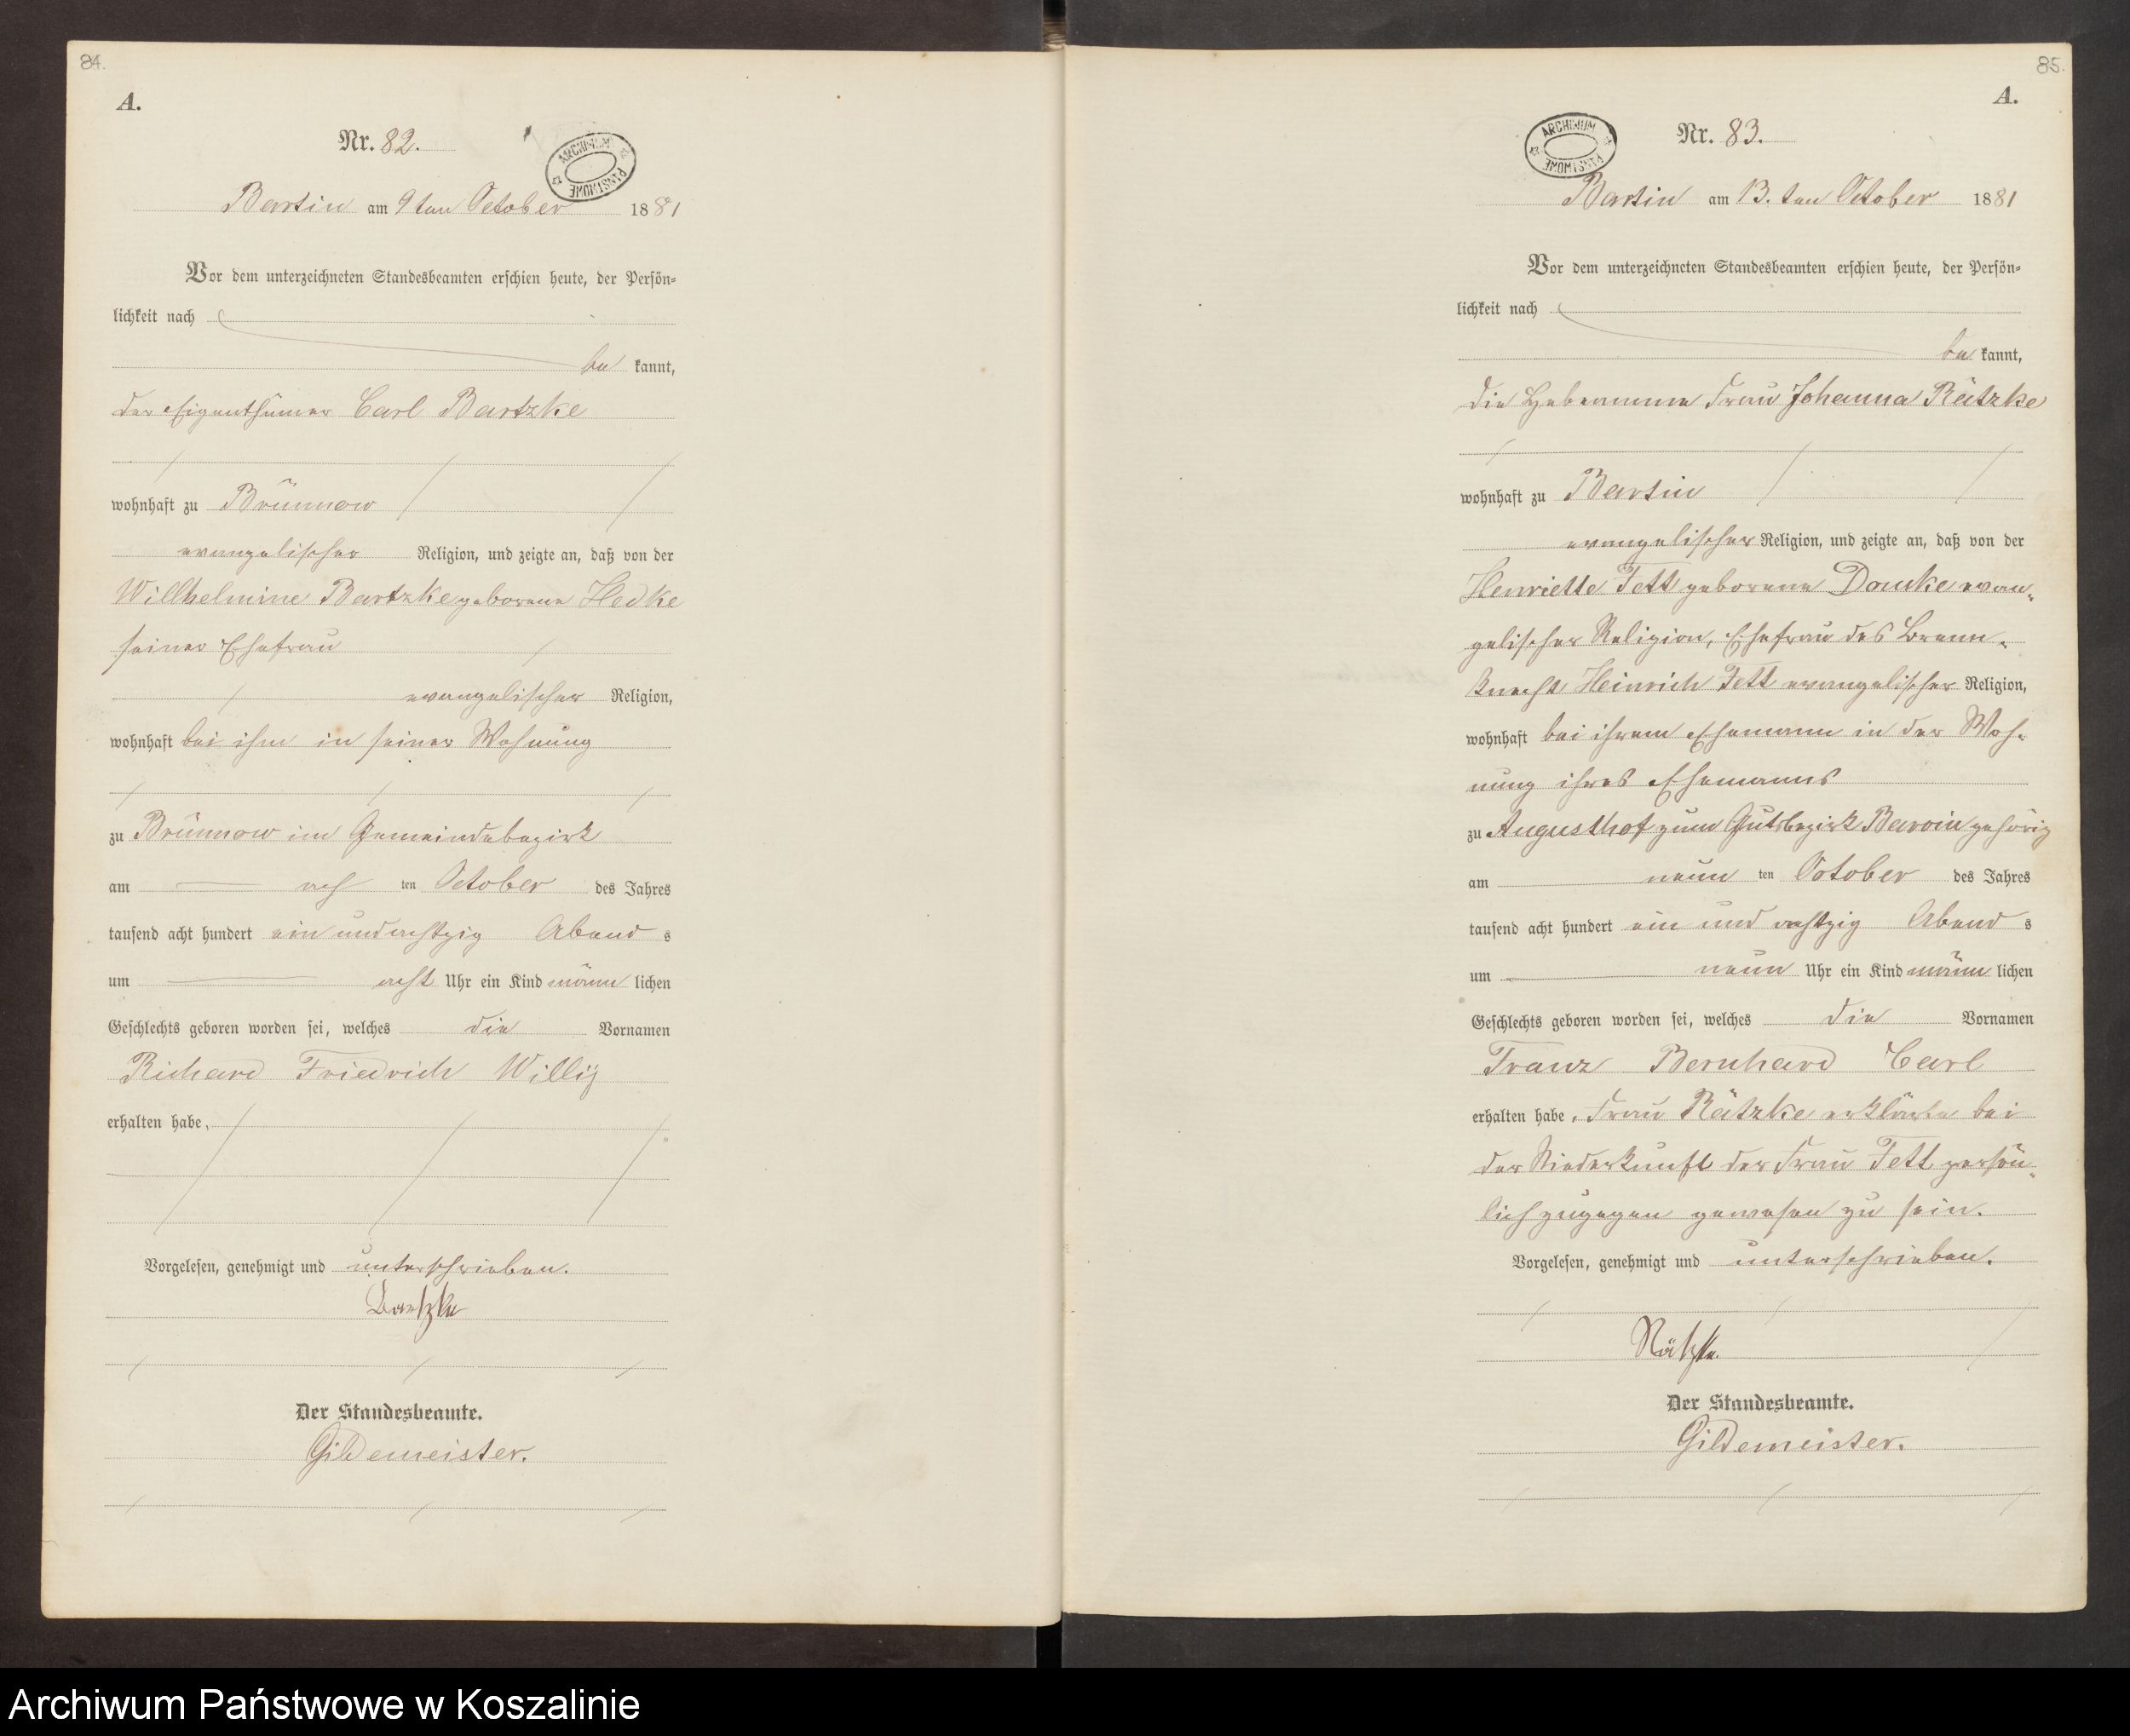 84.
A.
Nr. 82.
ARCHIWUM PAŃSTWOWE
Bartin am 9ten October 1881
Vor dem unterzeichneten Standesbeamten erschien heute, der Persön-
lichkeit nach
be kannt,
der Eigenthümer Carl Bartzke
wohnhaft zu Brünnow
evangelischer Religion, und zeigte an, daß von der
Willhelmine Bartzke geborene Hedke
seiner Ehefrau
evangelischer Religion,
wohnhaft bei ihm in seiner Wohnung
zu Brünnow im Gemeindebezirk
am ach ten October des Jahres
tausend acht hundert ein und achtzig Abend s
um acht Uhr ein Kind männ lichen
Geschlechts geboren worden sei, welches die Vornamen
Richard Friedrich Willy
erhalten habe.
Vorgelesen, genehmigt und unterschrieben.
Bartzke
Der Standesbeamte.
Gildemeister.
85.
A.
ARCHIWUM PAŃSTWOWE
Nr. 83.
Bartin am 13. ten October 1881
Vor dem unterzeichneten Standesbeamten erschien heute, der Persön-
lichkeit nach
be kannt,
die Hebeamme Frau Johanna Rätzke
wohnhaft zu Bartin
evangelischer Religion, und zeigte an, daß von der
Henriette Fett geborene Domke evan-
gelischer Religion, Ehefrau des Brenn-
knecht Heinrich Fett evangelischer Religion,
wohnhaft bei ihrem Ehemann in der Woh-
nung ihres Ehemanns
zu Augusthof zum Gutsbezirk Barvin gehörig
am neun ten October des Jahres
tausend acht hundert ein und achtzig Abend s
um neun Uhr ein Kind männ lichen
Geschlechts geboren worden sei, welches die Vornamen
Franz Bernhard Carl
erhalten habe. Frau Rätzke erklärte bei
der Niederkunft der Frau Fett persön-
lich zugegen gewesen zu sein.
Vorgelesen, genehmigt und unterschrieben.
Rätzke.
Der Standesbeamte.
Gildemeister.
Archiwum Państwowe w Koszalinie